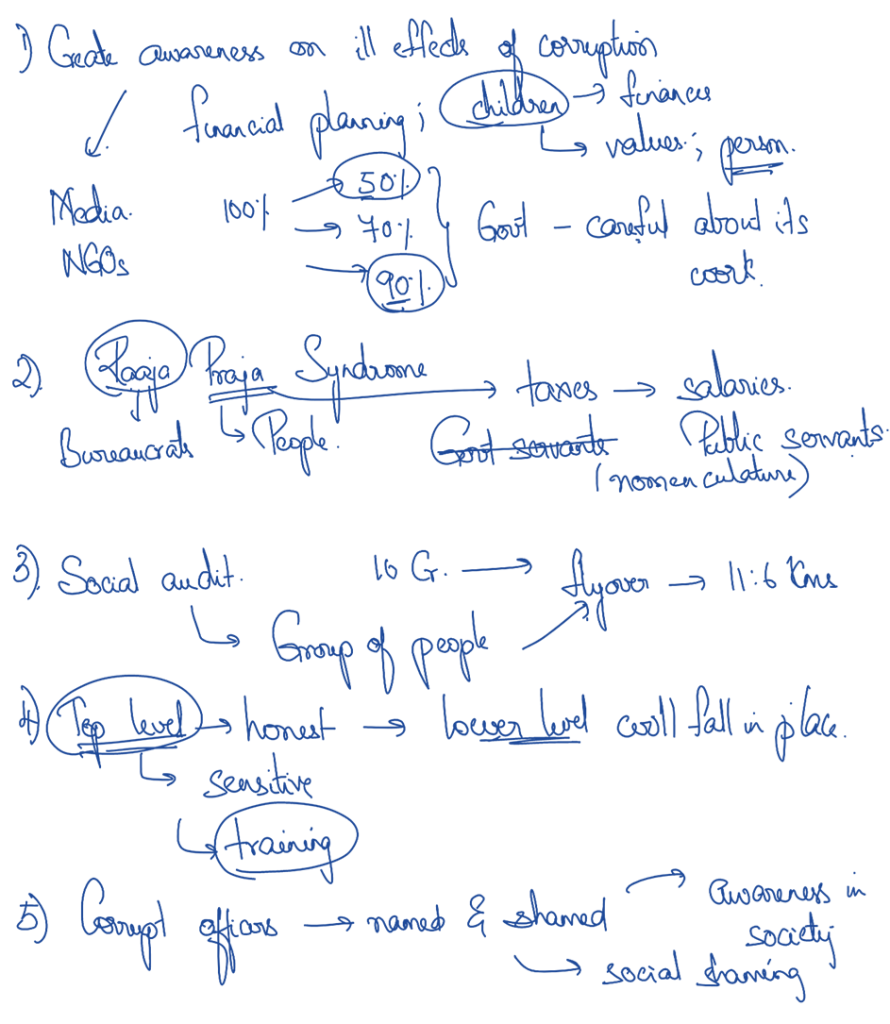 1) Create awareness on ill effects of corruption
financial planning; children → finances
↳ values; person.
Media
NGOs
100% → 50%
→ 70%
→ 90%
Govt - careful about its
work.
2) Raaja Praja Syndrome → taxes → salaries.
Bureaucrats ↳ People. Govt servants Public servants.
(nomenculature)
3) Social audit. 10 Cr. → flyover → 11.6 Kms
↳ Group of people
4) Top level → honest → lower level will fall in place.
↳ sensitive
↳ training
5) Corrupt officers → named & shamed → awareness in
society
→ social shaming